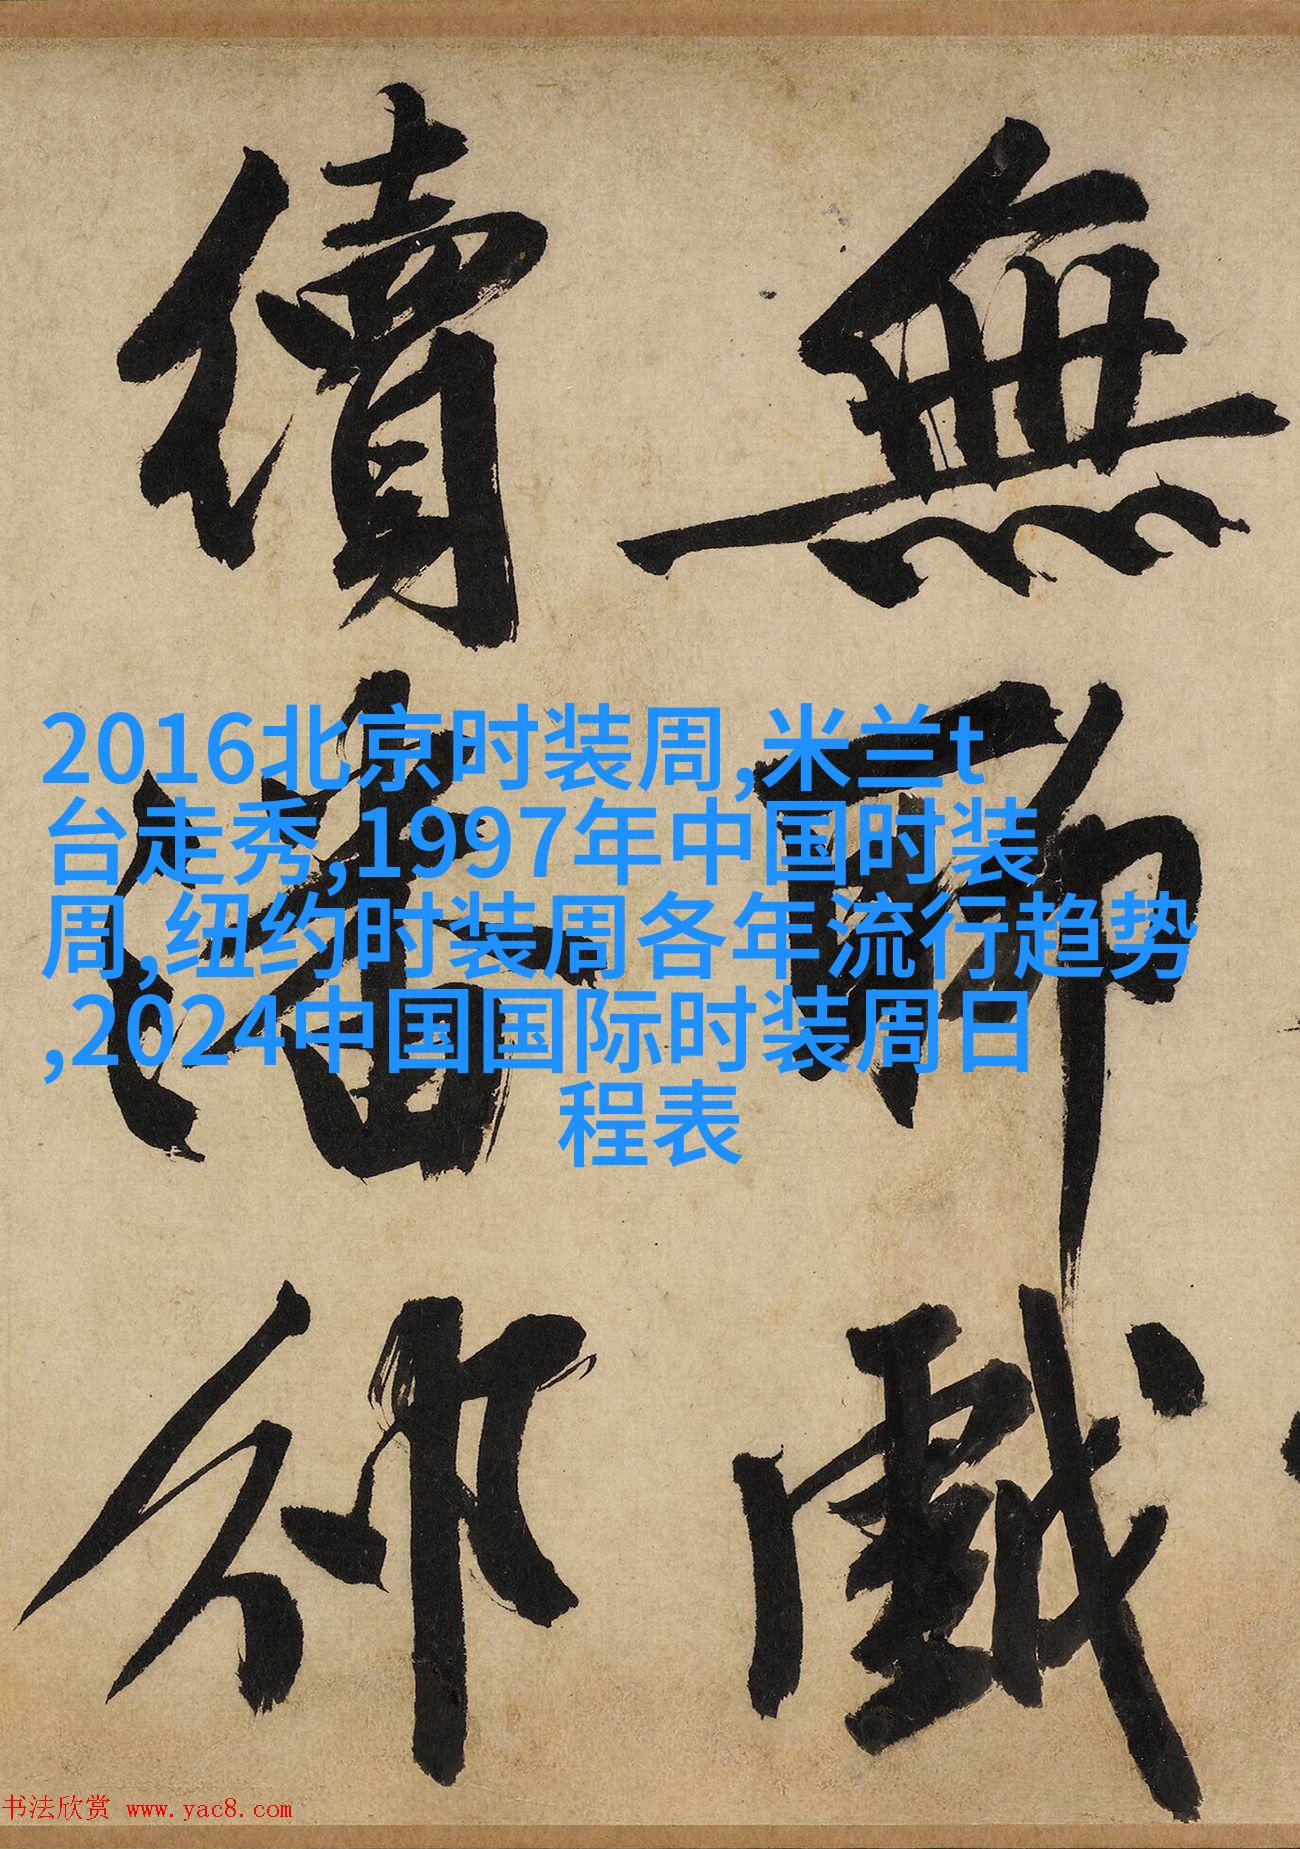 無聊戲
續潘邠
2016北京时装周,米兰t
台走秀,1997年中国时装
周,纽约时装周各年流行趋势
,2024中国国际时装周日
程表
书法欣赏 www.yac8.com